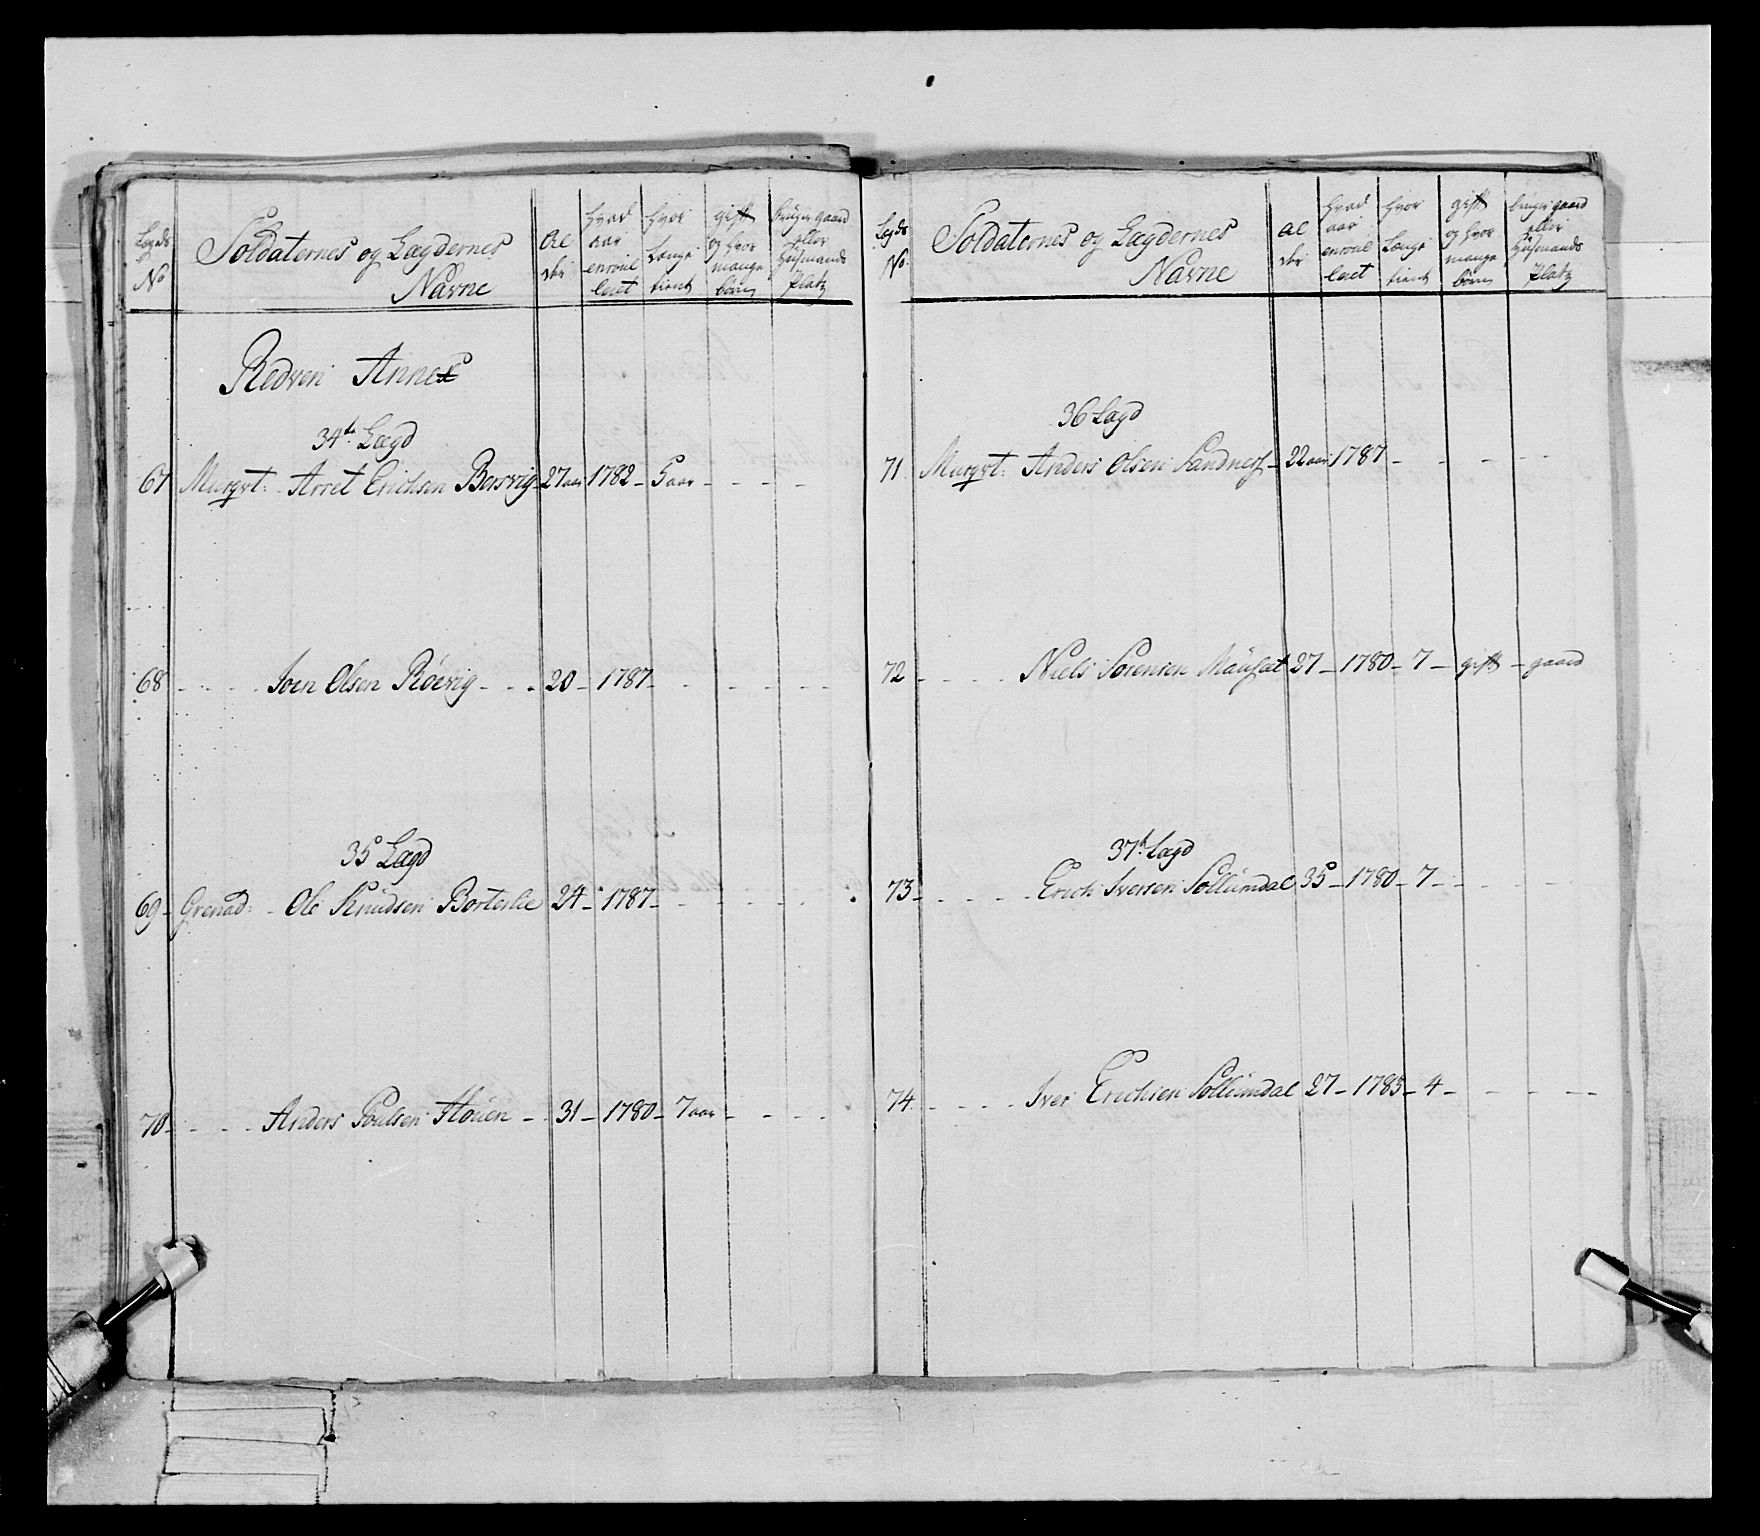 Lægds No
Soldaternes og Lægdernes Navne
Al der
hvad aar enroul leret
hvor Længe tient
gift og hvor mange børn
bruger gaard eller Huusmands Platz
Redven Annex
34te Lægd
67 Musqvt: Arret Erichsen Borsvig 27 aar 1782 5 aar
68 Joen Olsen Röevig 20 1787
35 Lægd
69 Grenad: Ole Knudsen Borterlie 24 1787
70 Anders Poulsen Houen 31 1780 7 aar
Lægds No.
Soldaternes og Lægdernes Navne
Al der
hvad aar enroul leret
hvor Længe tient
gift og hvor mange børn
bruger gaard eller Huusmands Platz
36 Lægd
71 Musqvt: Anders Olsen Sandnes 22 aar 1787
72 Niels Sörensen 27 1780 7 gift gaard
37te Lægd
73 Erich Iversen Sollümdal 35 1780 7
74 Iver Erichsen Sollümdal 27 1783 4